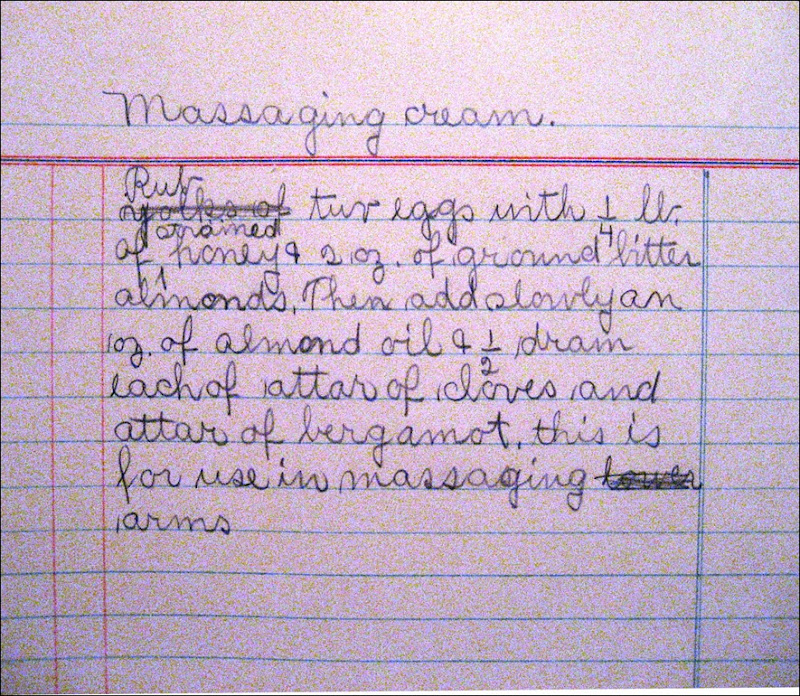 Massaging cream.
Rub
yolks of two eggs with 1/4 lb.
strained
of honey & 2 oz. of ground bitter
almonds. Then add slowly an
oz. of almond oil & 1/2 dram
each of attar of cloves and
attar of bergamot, this is
for use in massaging lower
arms